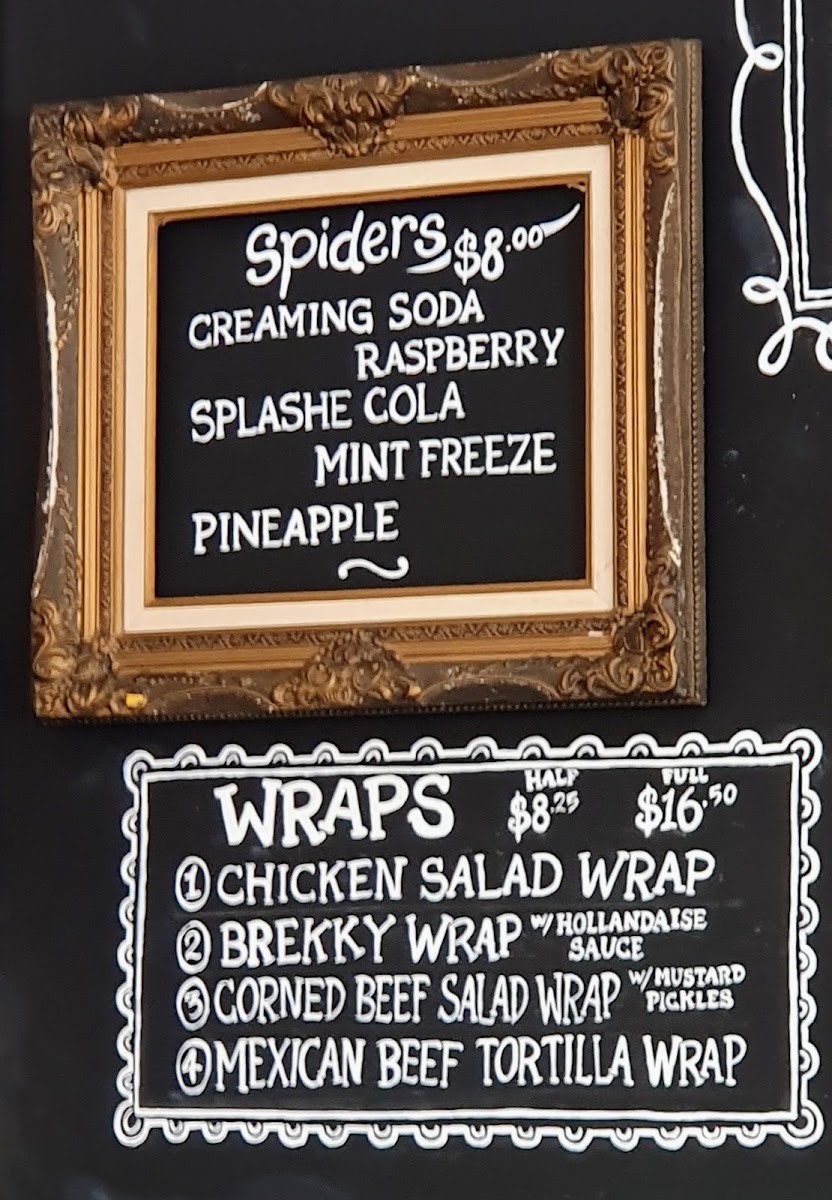 Spiders $8.00
CREAMING SODA
RASPBERRY
SPLASHE COLA
MINT FREEZE
PINEAPPLE
HALF FULL
WRAPS $8.25 $16.50
1 CHICKEN SALAD WRAP
2 BREKKY WRAP W/ HOLLANDAISE
SAUCE
3 CORNED BEEF SALAD WRAP W/ MUSTARD
PICKLES
4 MEXICAN BEEF TORTILLA WRAP